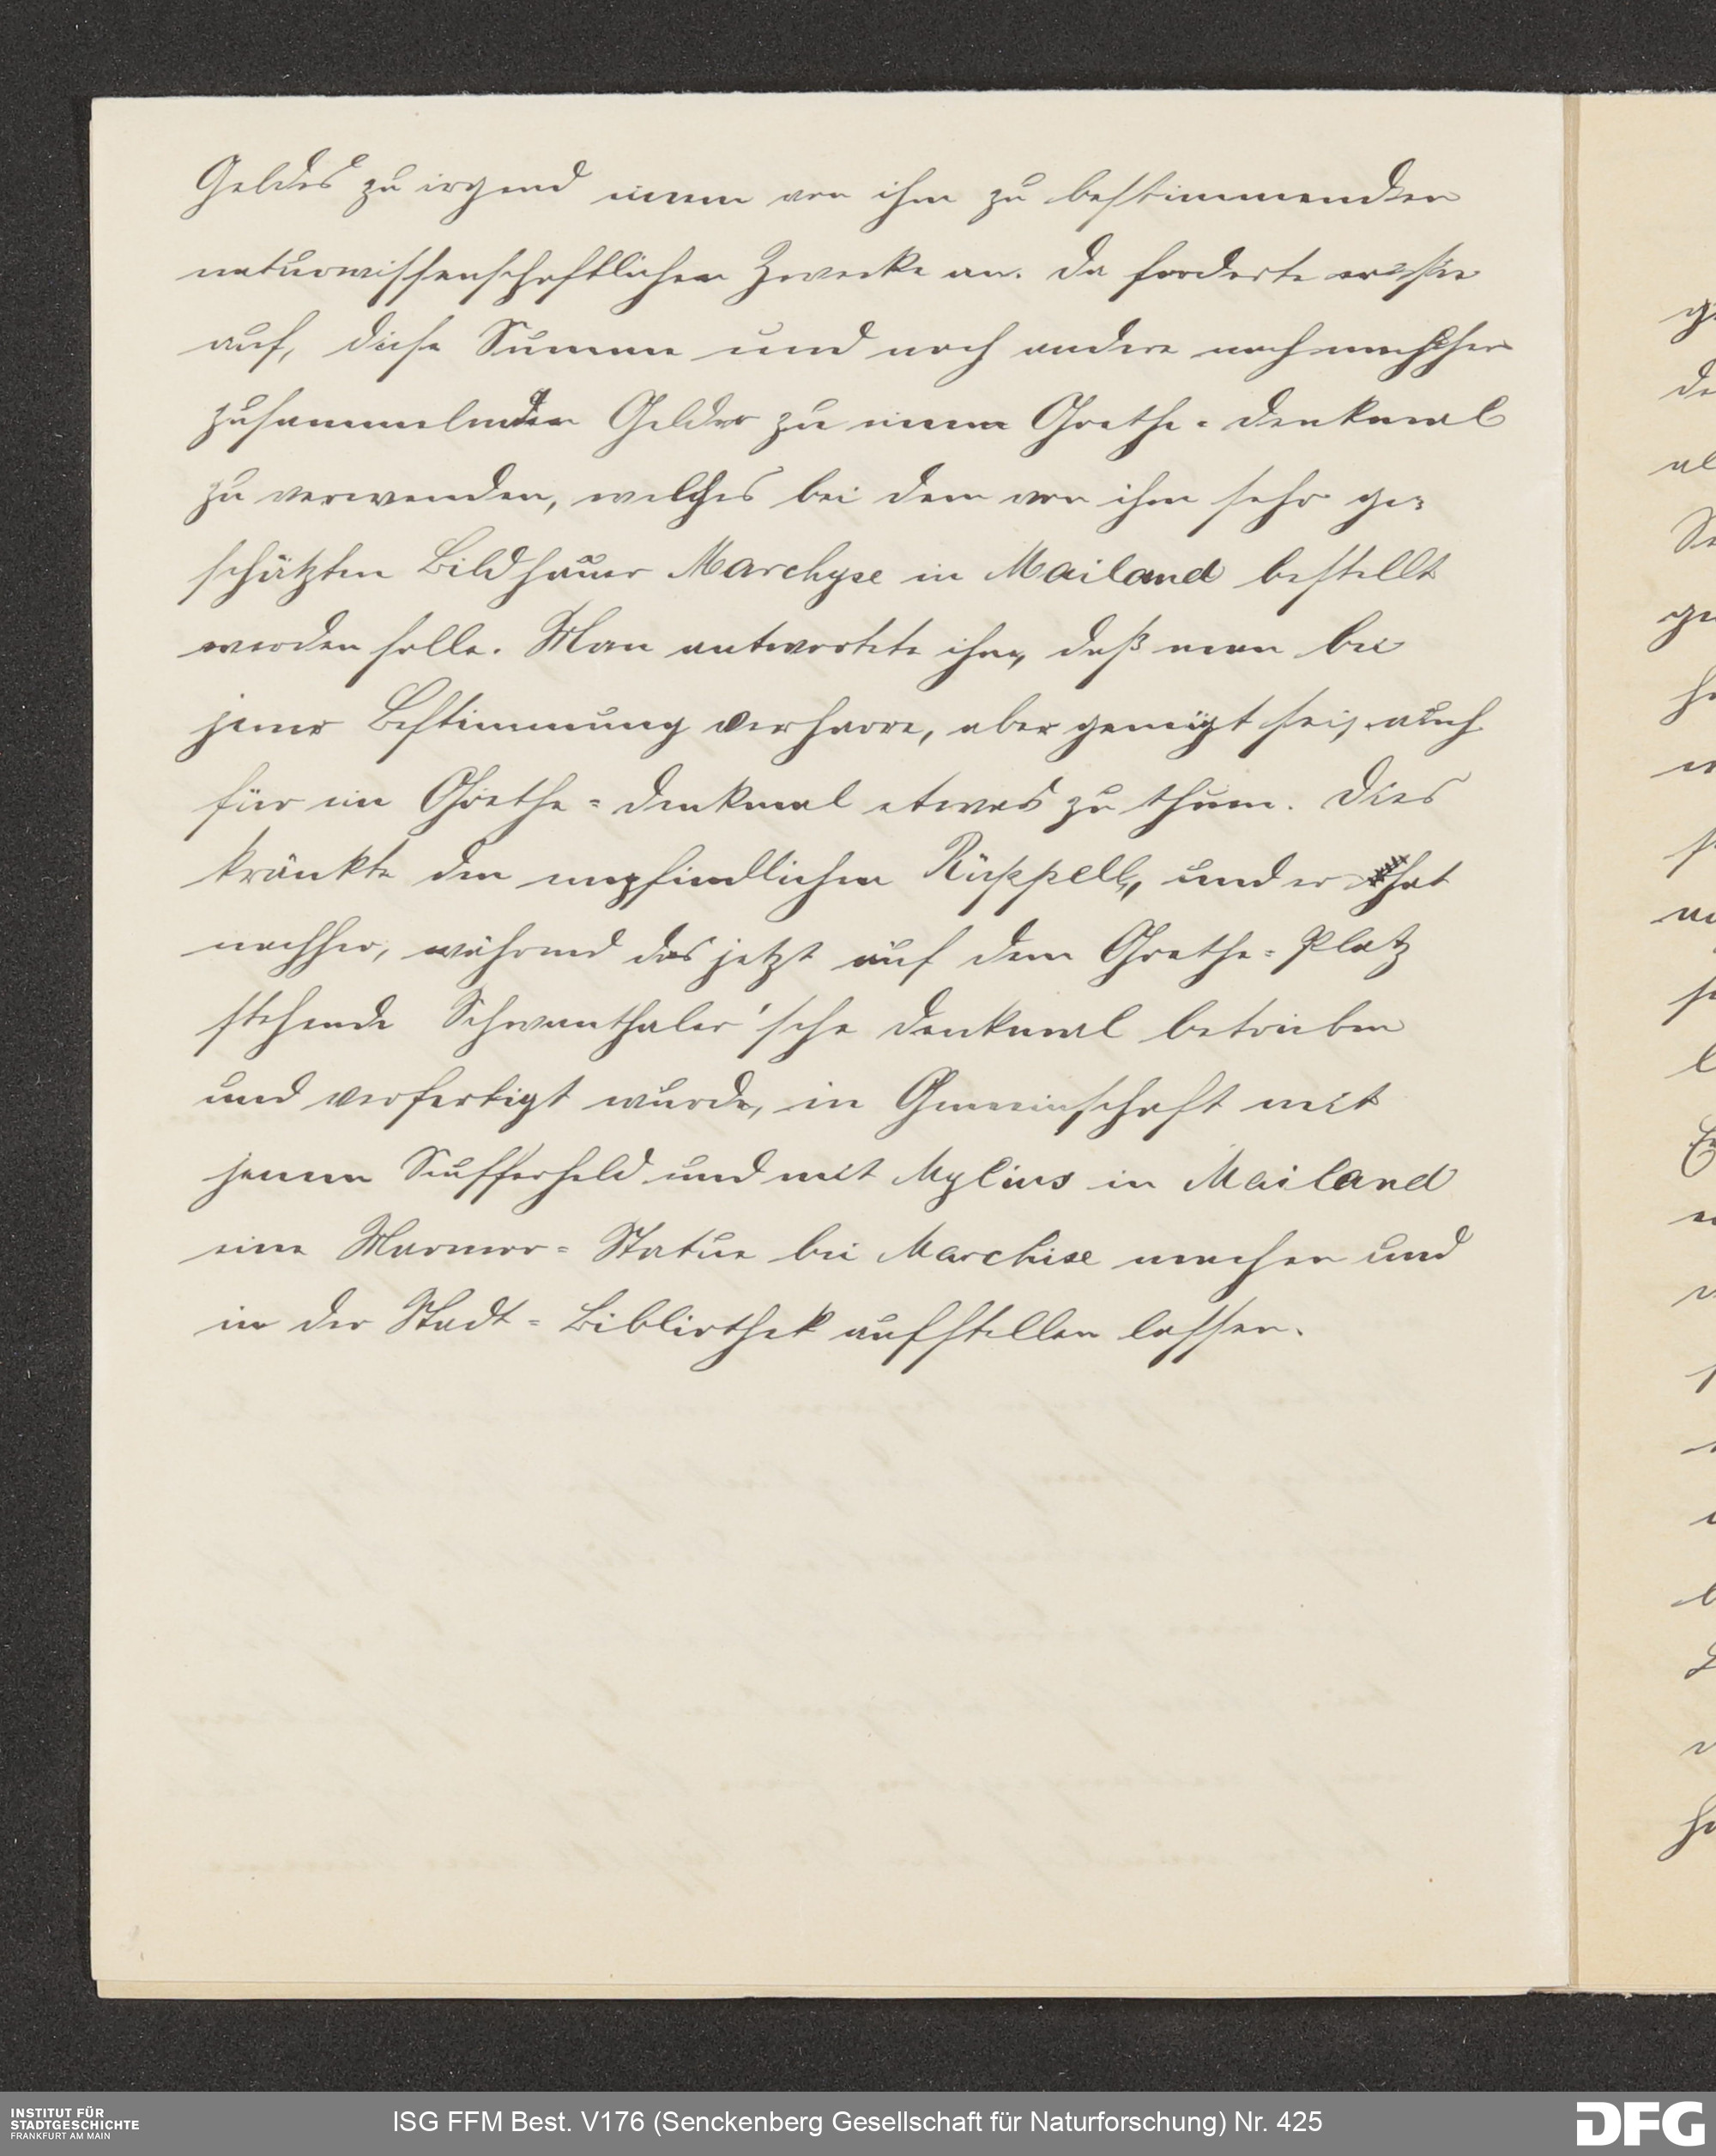 Geldes zu irgend einem von ihm zu bestimmenden
naturwissenschaftlichen Zwecke an. Da forderte er sie
auf, diese Summe und noch andere nach und nach
zusammelnden Gelder zu einem Goethe-Denkmal
zu verwenden, welches bei dem von ihm sehr ge-
schätzten Bildhauer Marchyse in Mailand bestellt
werden solle. Man antwortete ihm, daß man bei
jener Bestimmung verharre, aber geneigt sei, auch
für ein Goethe-Denkmal etwas zu thun. Dies
kränkte den empfindlichen Rüppell, und er hat
nachher, während das jetzt auf dem Goethe-Platz
stehende Schwanthaler'sche Denkmal betrieben
und verfertigt wurde, in Gemeinschaft mit
jenem Seufferheld und mit Mylius in Mailand
eine Marmor-Statue bei Marchise machen und
in der Stadt-Bibliothek aufstellen lassen.
INSTITUT FÜR
STADTGESCHICHTE
FRANKFURT AM MAIN
ISG FFM Best. V176 (Senckenberg Gesellschaft für Naturforschung) Nr. 425
DFG